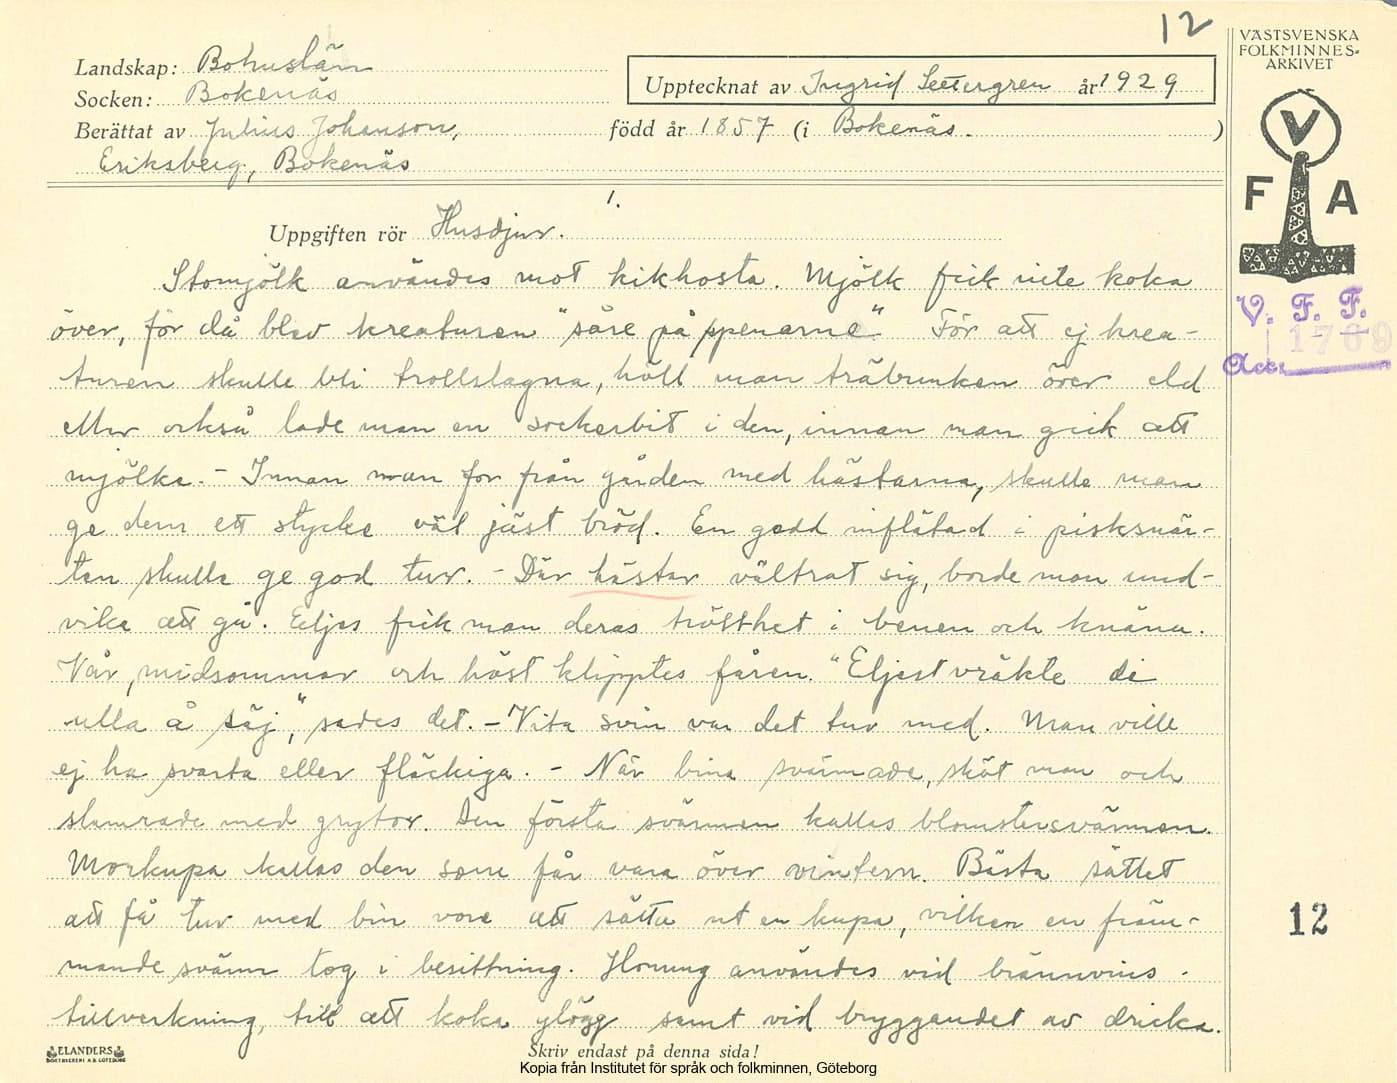 12
VÄSTSVENSKA
FOLKMINNES-
ARKIVET
Landskap: Bohuslän
Socken: Bokenäs
Upptecknat av Ingrid Settergren år 1929
Berättat av Julius Johanson, född år 1857 (i Bokenäs. )
Eriksberg, Bokenäs
V
F A
1.
Uppgiften rör Husdjur.
Stomjölk användes mot kikhosta. Mjölk fick inte koka
över, för då blev kreaturen "såre på spenarne". För att ej krea-
turen skulle bli trollslagna, höll man träbunken över eld
eller också lade man en sockerbit i den, innan man gick att
mjölka. - Innan man for från gården med hästarna, skulle man
ge dem ett stycke väl jäst bröd. En gedd inflätad i pisksnär-
ten skulle ge god tur. - Där hästar vältrat sig, borde man und-
vika att gå. Eljes fick man deras trötthet i benen och knäna.
Vår, midsommar och höst klipptes fåren. "Eljest vräkte di
ulla å säj," sades det. - Vita svin var det tur med. Man ville
ej ha svarta eller fläckiga. - När bina svärmade, sköt man och
slamrade med grytor. Den första svärmen kallas blomstersvärmen.
Morkupa kallas den som får vara över vintern. Bästa sättet
att få tur med bin vore att sätta ut en kupa, vilken en främ-
mande svärm tog i besittning. Honung användes vid brännvins-
tillverkning, till att koka glögg samt vid bryggandet av dricka.
V. F. F.
1769
Acc.
12
ELANDERS
BOKTRYCKERI A.B. GÖTEBORG
Skriv endast på denna sida!
Kopia från Institutet för språk och folkminnen, Göteborg